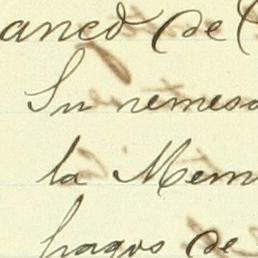 anco de
Su remesa
la Mem
pagos de